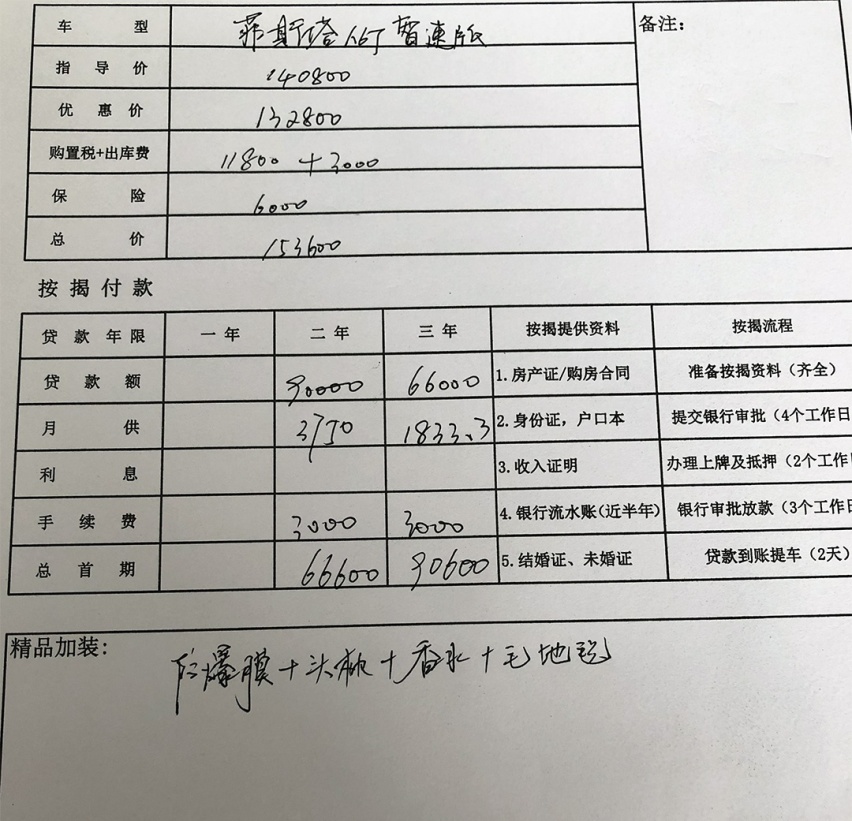 车 型 菲斯塔1.6T 智速版 备注：
指 导 价 140800
优 惠 价 132800
购置税+出库费 11800 + 3000
保 险 6000
总 价 153600
按 揭 付 款
贷 款 年 限 一 年 二 年 三 年 按揭提供资料 按揭流程
贷 款 额 90000 66000 1.房产证/购房合同 准备按揭资料（齐全）
月 供 3750 1833.3 2.身份证，户口本 提交银行审批（4个工作日
利 息 3.收入证明 办理上牌及抵押（2个工作
手 续 费 3000 3000 4.银行流水账(近半年) 银行审批放款（3个工作日
总 首 期 66600 90600 5.结婚证、未婚证 贷款到账提车（2天）
精品加装： 防爆膜+头枕+香水+毛地毯